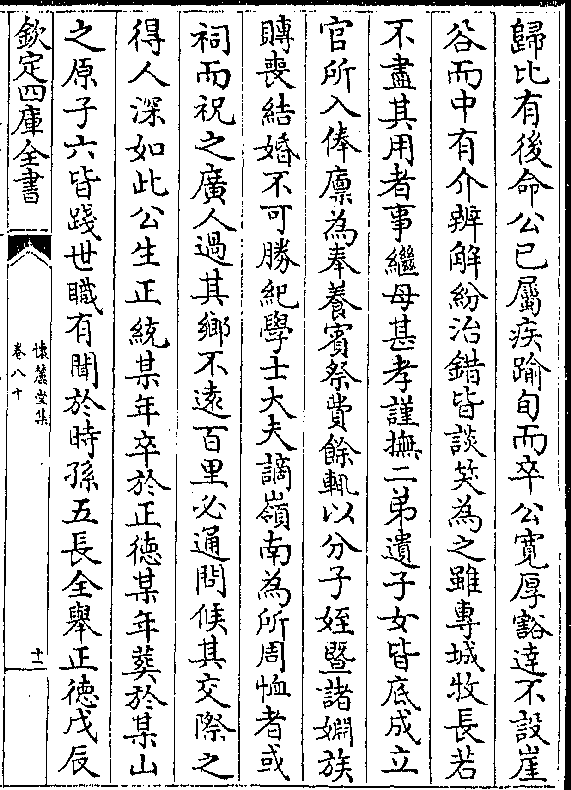 歸比有後命公已屬疾踰旬而卒公寛厚豁達不設崖
谷而中有介辨解紛治錯皆談笑為之雖專城牧長若
不盡其用者事繼母甚孝謹撫二弟遺子女皆底成立
官所入俸廪為奉養賓祭費餘輒以分子姪暨諸婣族
賻喪結婚不可勝紀學士大夫謫嶺南為所周恤者或
祠而祝之廣人過其鄉不逺百里必通問候其交際之
得人深如此公生正統某年卒於正徳某年葬於某山
之原子六皆踐世職有聞於時孫五長全舉正徳戊辰
欽定四庫全書
懷麓堂集
卷八十
十二